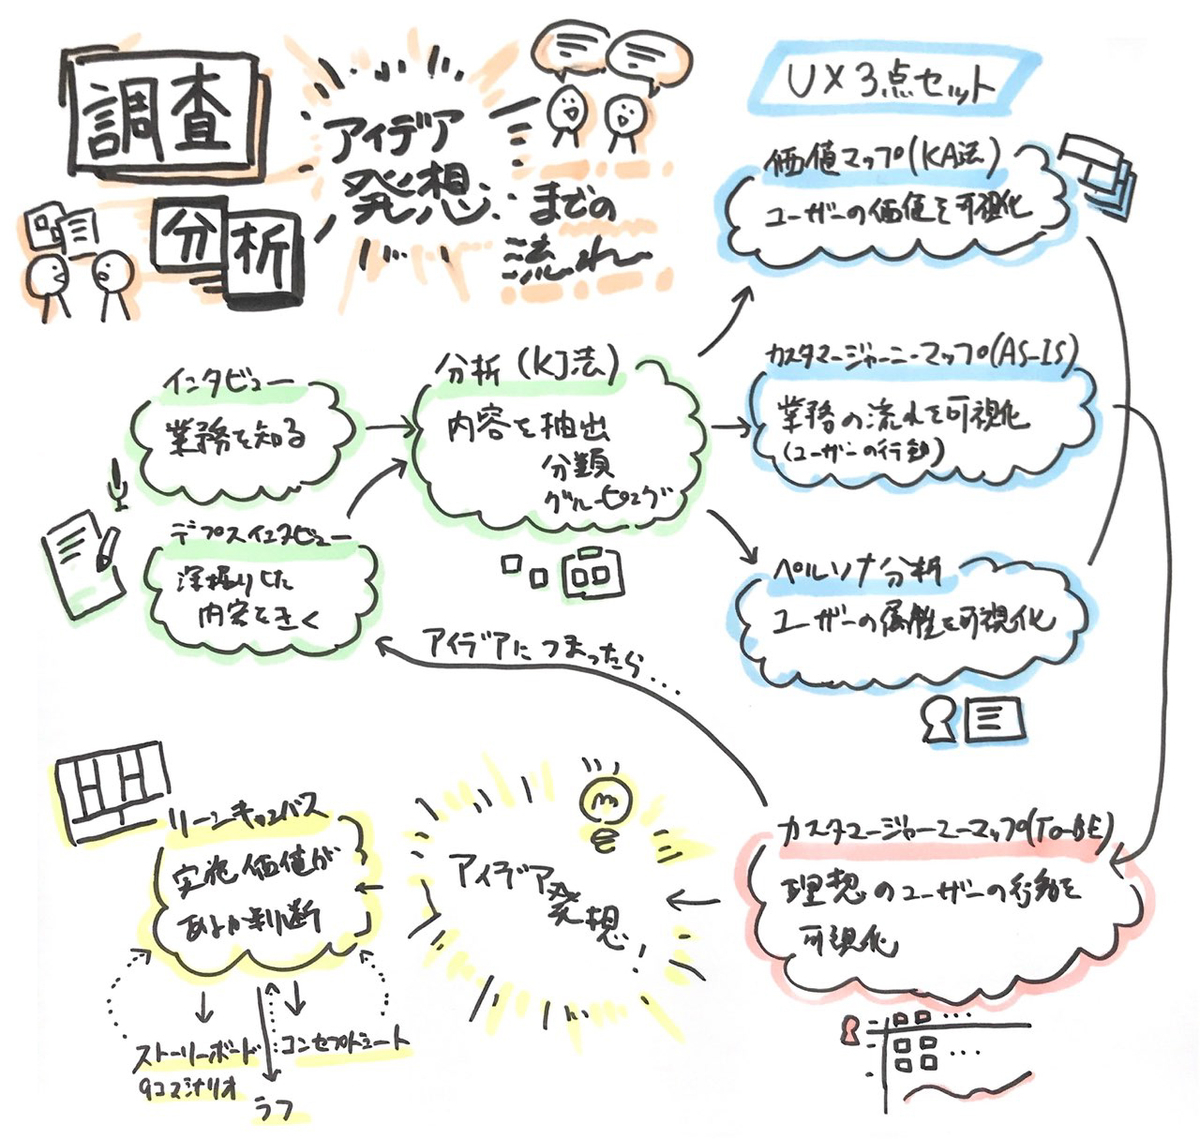 調査
分析
アイデア
発想
までの
流れ
UX3点セット
価値マップ(KA法)
ユーザーの価値を可視化
カスタマージャーニーマップ(AS-IS)
業務の流れを可視化
(ユーザーの行動)
ペルソナ分析
ユーザーの属性を可視化
インタビュー
業務を知る
デプスインタビュー
深掘りした
内容をきく
分析(KJ法)
内容を抽出
分類
グルーピング
アイデアにつまったら...
カスタマージャーニーマップ(TO-BE)
理想のユーザーの行動を
可視化
アイデア
発想!
リーンキャンバス
実施価値が
あるか判断
ストーリーボード
9コマシナリオ
コンセプトシート
ラフ